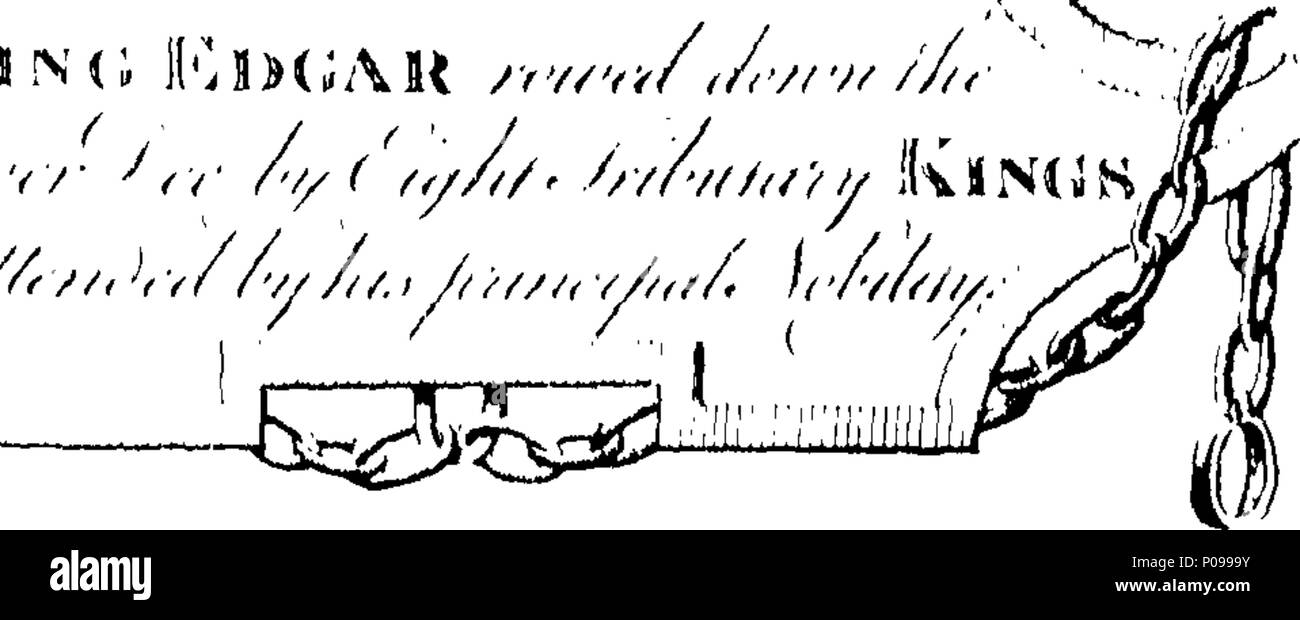 ING EDGAR rowed down the
ver Dee by Eight Tributary KINGS
ttended by his principal Nobility.
a
alamy
Image ID: P0999Y
www.alamy.com